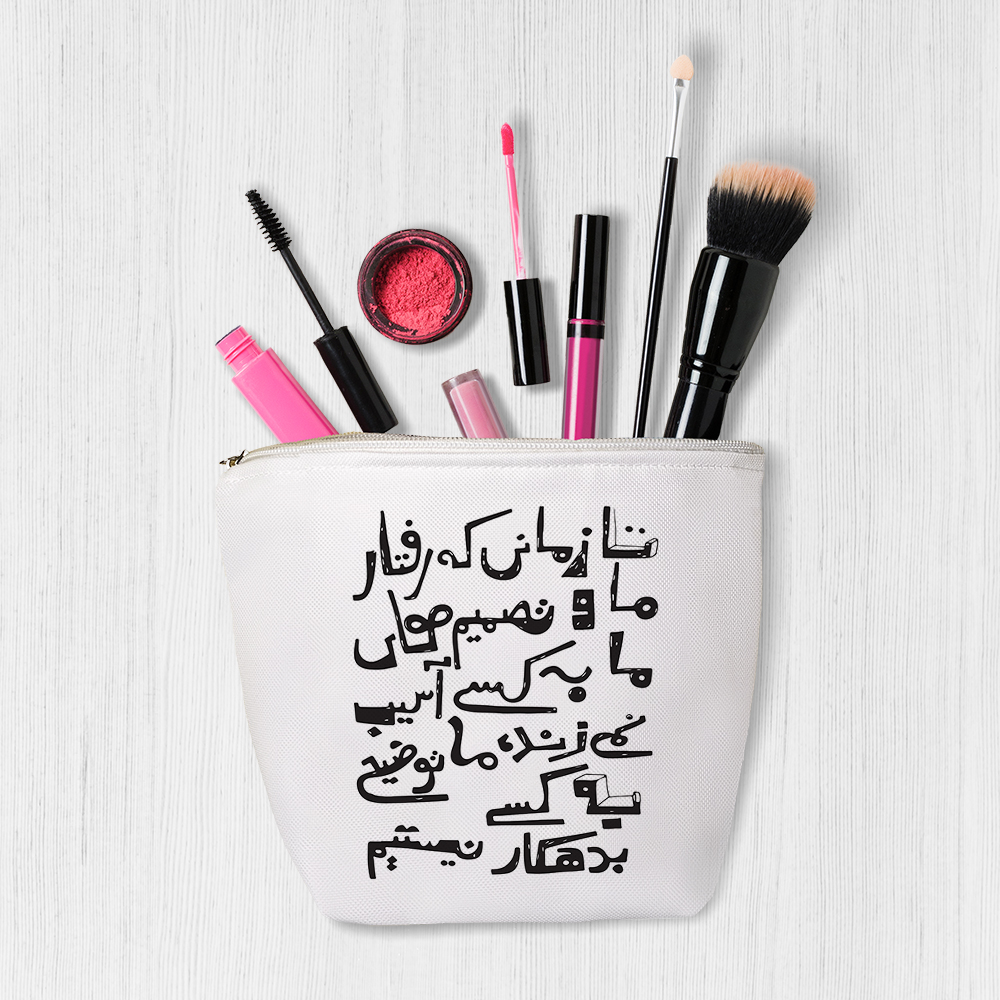 تا زمانی که رفتار
ما و تصمیم های
ما به کسی آسیب
نمی زند، ما توضیحی
به کسی
بدهکار نیستیم